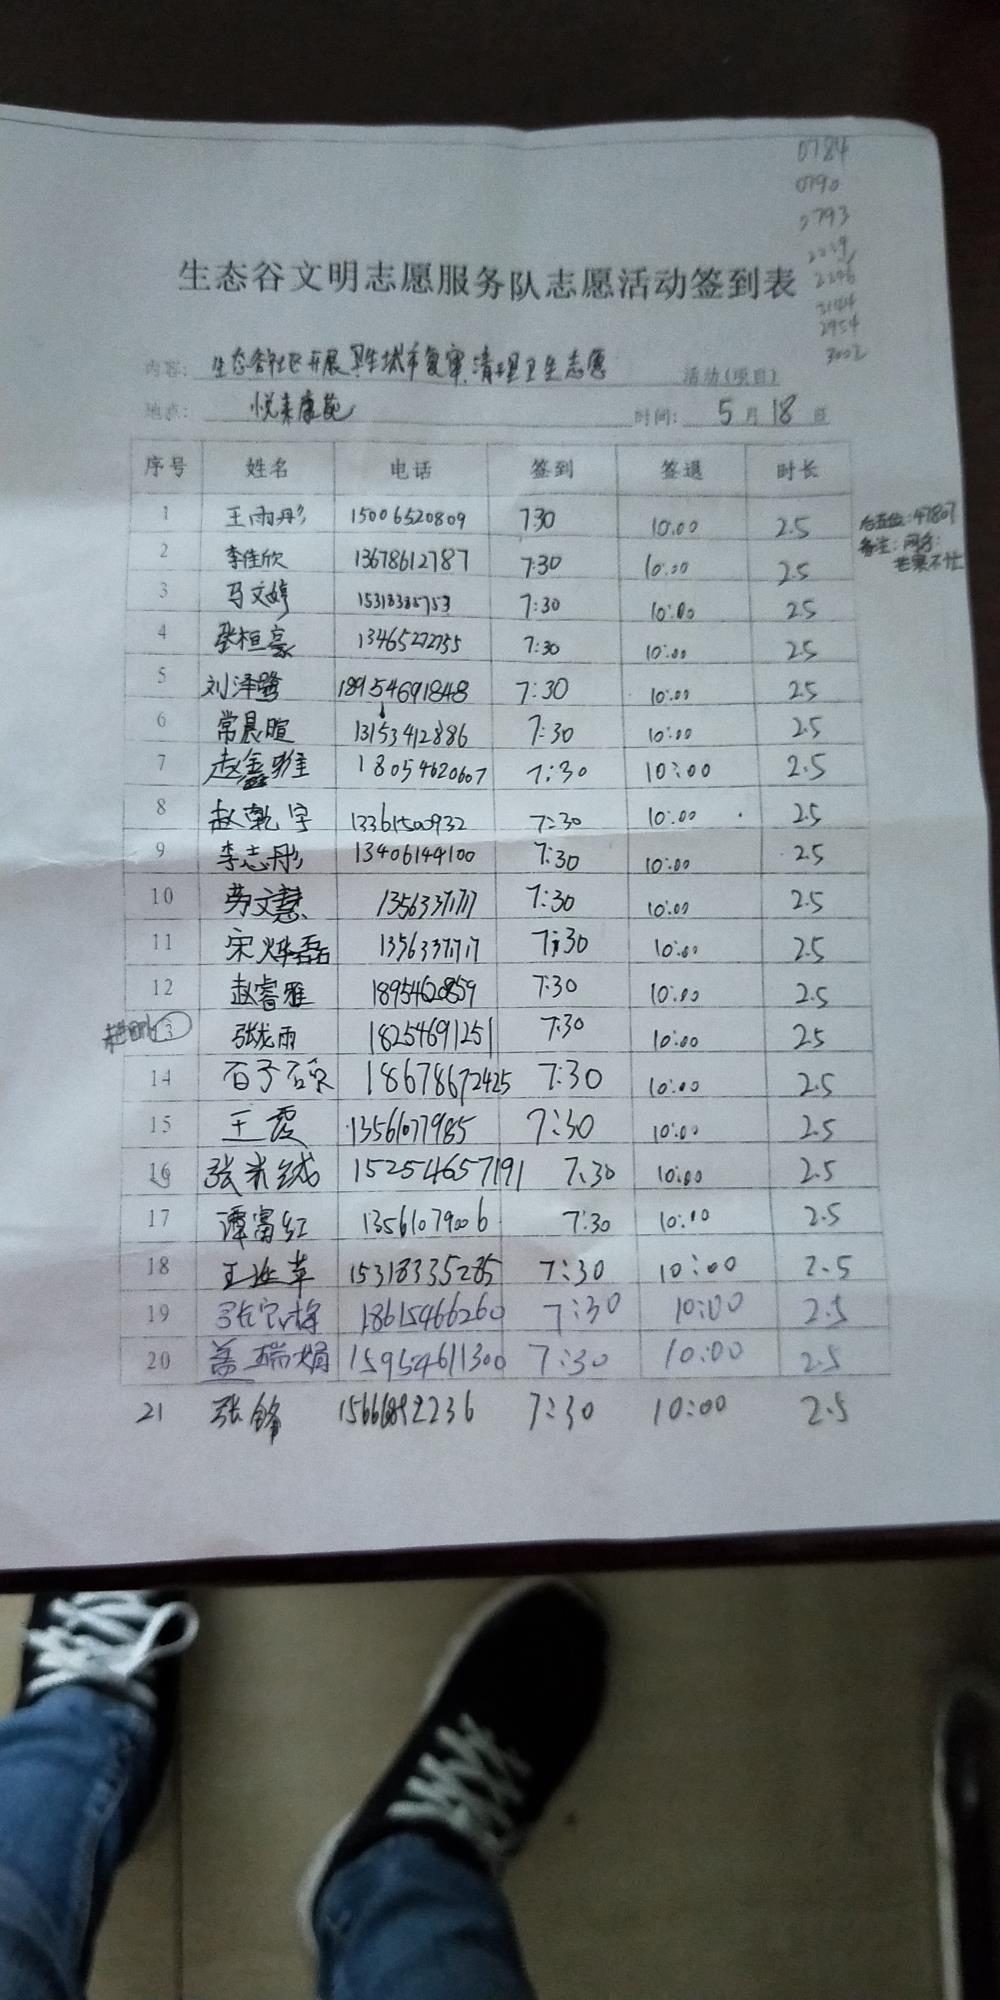 0784
0790
0793
2296
2954
3002
生态谷文明志愿服务队志愿活动签到表
内容: 生态谷社区开展卫生城市复审,清理卫生志愿 活动(项目)
地点: 悦来康苑 时间: 5 月 18 日
序号 姓名 电话 签到 签退 时长
1 王雨彤 15006520809 7:30 10:00 2.5 后五位:47807
备注:网名:
芒果不忙
2 李佳欣 13678612787 7:30 10:00 2.5
3 马文婷 15318385753 7:30 10:00 2.5
4 张桓豪 13465272755 7:30 10:00 2.5
5 刘泽鹭 18954691848 7:30 10:00 2.5
6 常晨暄 13153412886 7:30 10:00 2.5
7 赵鑫雅 18054620607 7:30 10:00 2.5
8 赵乾宇 13361500932 7:30 10:00 2.5
9 李志彤 13406144100 7:30 10:00 2.5
10 劳文慧 13563371717 7:30 10:00 2.5
11 宋烨磊 13563371717 7:30 10:00 2.5
12 赵睿雅 18954620859 7:30 10:00 2.5
13 张龙雨 18254691251 7:30 10:00 2.5
14 石子硕 18678672425 7:30 10:00 2.5
15 王霞 13561077985 7:30 10:00 2.5
16 张米绒 15254657191 7:30 10:00 2.5
17 谭富红 13561079006 7:30 10:00 2.5
18 王 革 15318335285 7:30 10:00 2.5
19 张 梅 18615466260 7:30 10:00 2.5
20 盖瑞娟 15954611300 7:30 10:00 2.5
21 张锋 7:30 10:00 2.5